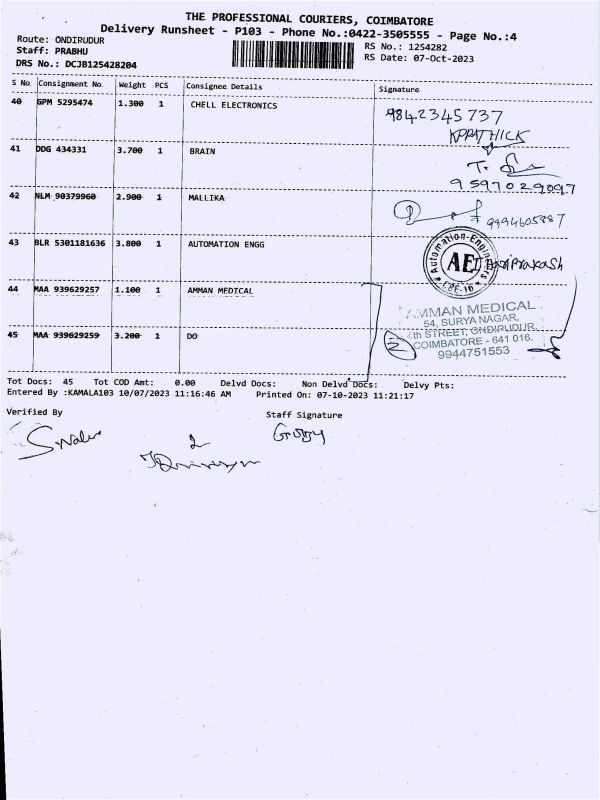 THE PROFESSIONAL COURIERS, COIMBATORE
Delivery Runsheet - P103 - Phone No.:0422-3505555 - Page No.:4
Route: ONDIRUDUR
RS No.: 1254282
Staff: PRABHU
RS Date: 07-Oct-2023
DRS No.: DCJB125428204
S No Consignment No Weight PCS Consignee Details Signature
40 GPM 5295474 1.300 1 CHELL ELECTRONICS 9842345737
41 DDG 434331 3.700 1 BRAIN
9597029097
42 NLM 90379960 2.900 1 MALLIKA
43 BLR 5301181636 3.800 1 AUTOMATION ENGG
Automation-Engineers
AE
CBE-16
HariPrakaSh
44 MAA 939629257 1.100 1 AMMAN MEDICAL
AMMAN MEDICAL
54, SURYA NAGAR,
4th STREET, ONDIPUDUR
COIMBATORE - 641 016.
9944751553
2
45 MAA 939629259 3.200 1 DO
Tot Docs: 45 Tot COD Amt: 0.00 Delvd Docs: Non Delvd Docs: Delvy Pts:
Entered By :KAMALA103 10/07/2023 11:16:46 AM Printed On: 07-10-2023 11:21:17
Verified By
Staff Signature